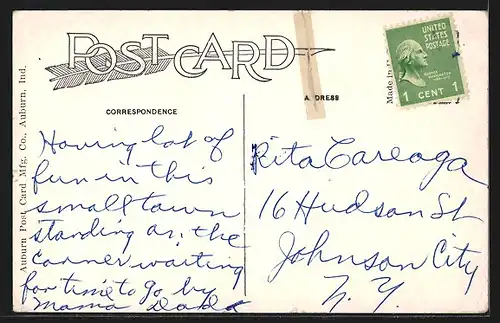 POST CARD
UNITED
STATES
POSTAGE
1 CENT 1
Made in
CORRESPONDENCE
ADDRESS
Auburn Post Card Mfg. Co., Auburn, Ind.
Having lot of
fun in this
small town
standing on the
corner waiting
for time to go by
Mama Dad
Rita Careaga
16 Hudson St
Johnson City
N.Y.